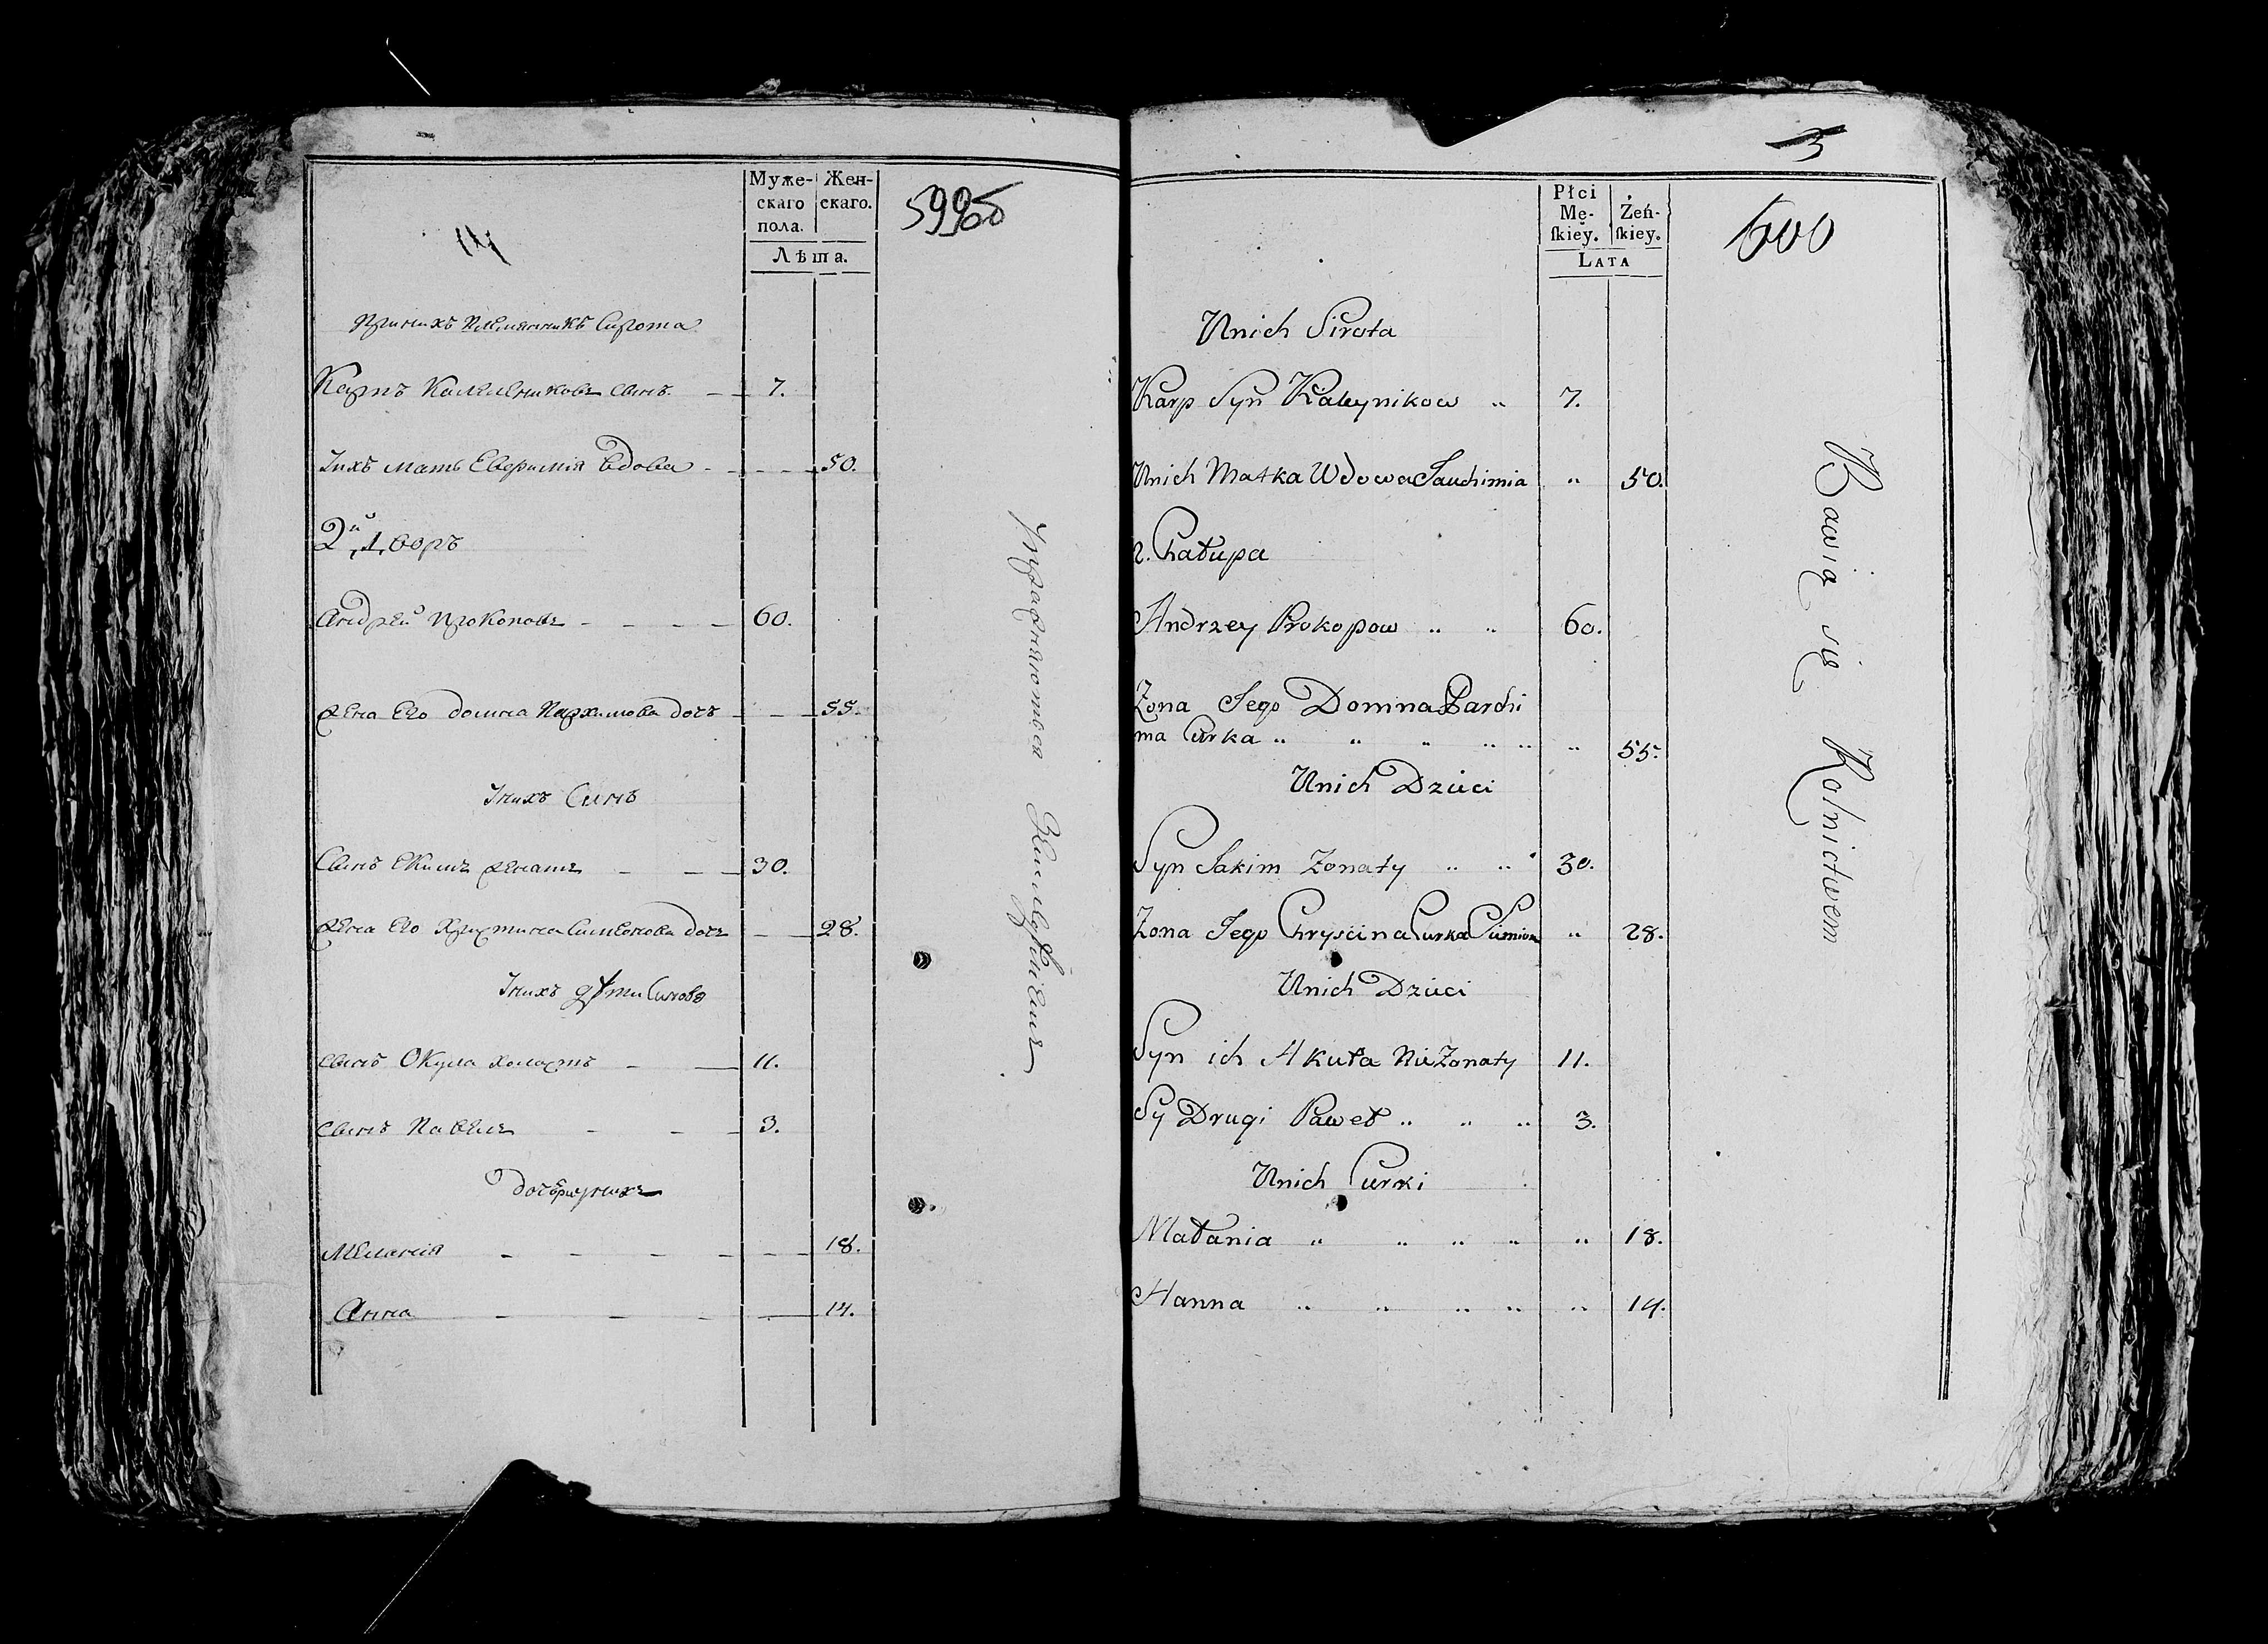 14
Муже-
скаго
пола.
Жен-
скаго.
Лѣта.
599об
принихъ племянникъ Сирота
Карпъ Калениковъ сынъ. 7.
Iихъ мать Евфимiя вдова 50.
2й дворъ
Андрей Прокоповъ 60.
жена Его домна Пархимова дочь 55.
Iнихъ Сынъ
Сынъ Екимъ женатъ 30.
жена Его Христина Симеонова дочь 28.
Iнихъ дѣти Сыновя
сынъ Окула холостъ 11.
сынъ Павелъ 3.
Меланiя 18.
Анна 14.
Упражняются Земледѣлiемъ
3
Płci
Mę-
skiey.
Żeń-
skiey.
Lata
600
Unich Sirota
Karp Syn Kalnynikow „ 7.
Unich Matka Wdowa Jauchimia „ 50.
2. Chałupa
Andrzey Prokopow „ „ 60.
Zona Jego Domna Parchi
ma Curka „ „ „ „ „ „ 55.
Unich Dzieci
Syn Jakim Zonaty „ „ 30.
Zona Jego Chryscina Curka Simiona „ 28.
Unich Dzieci
Syn ich Akuła NieZonaty 11.
Sy Drugi Paweł „ „ „ 3.
Unich Curki
Małania „ „ „ „ „ 18.
Hanna „ „ „ „ „ 14.
Bawią się Rolnictwem